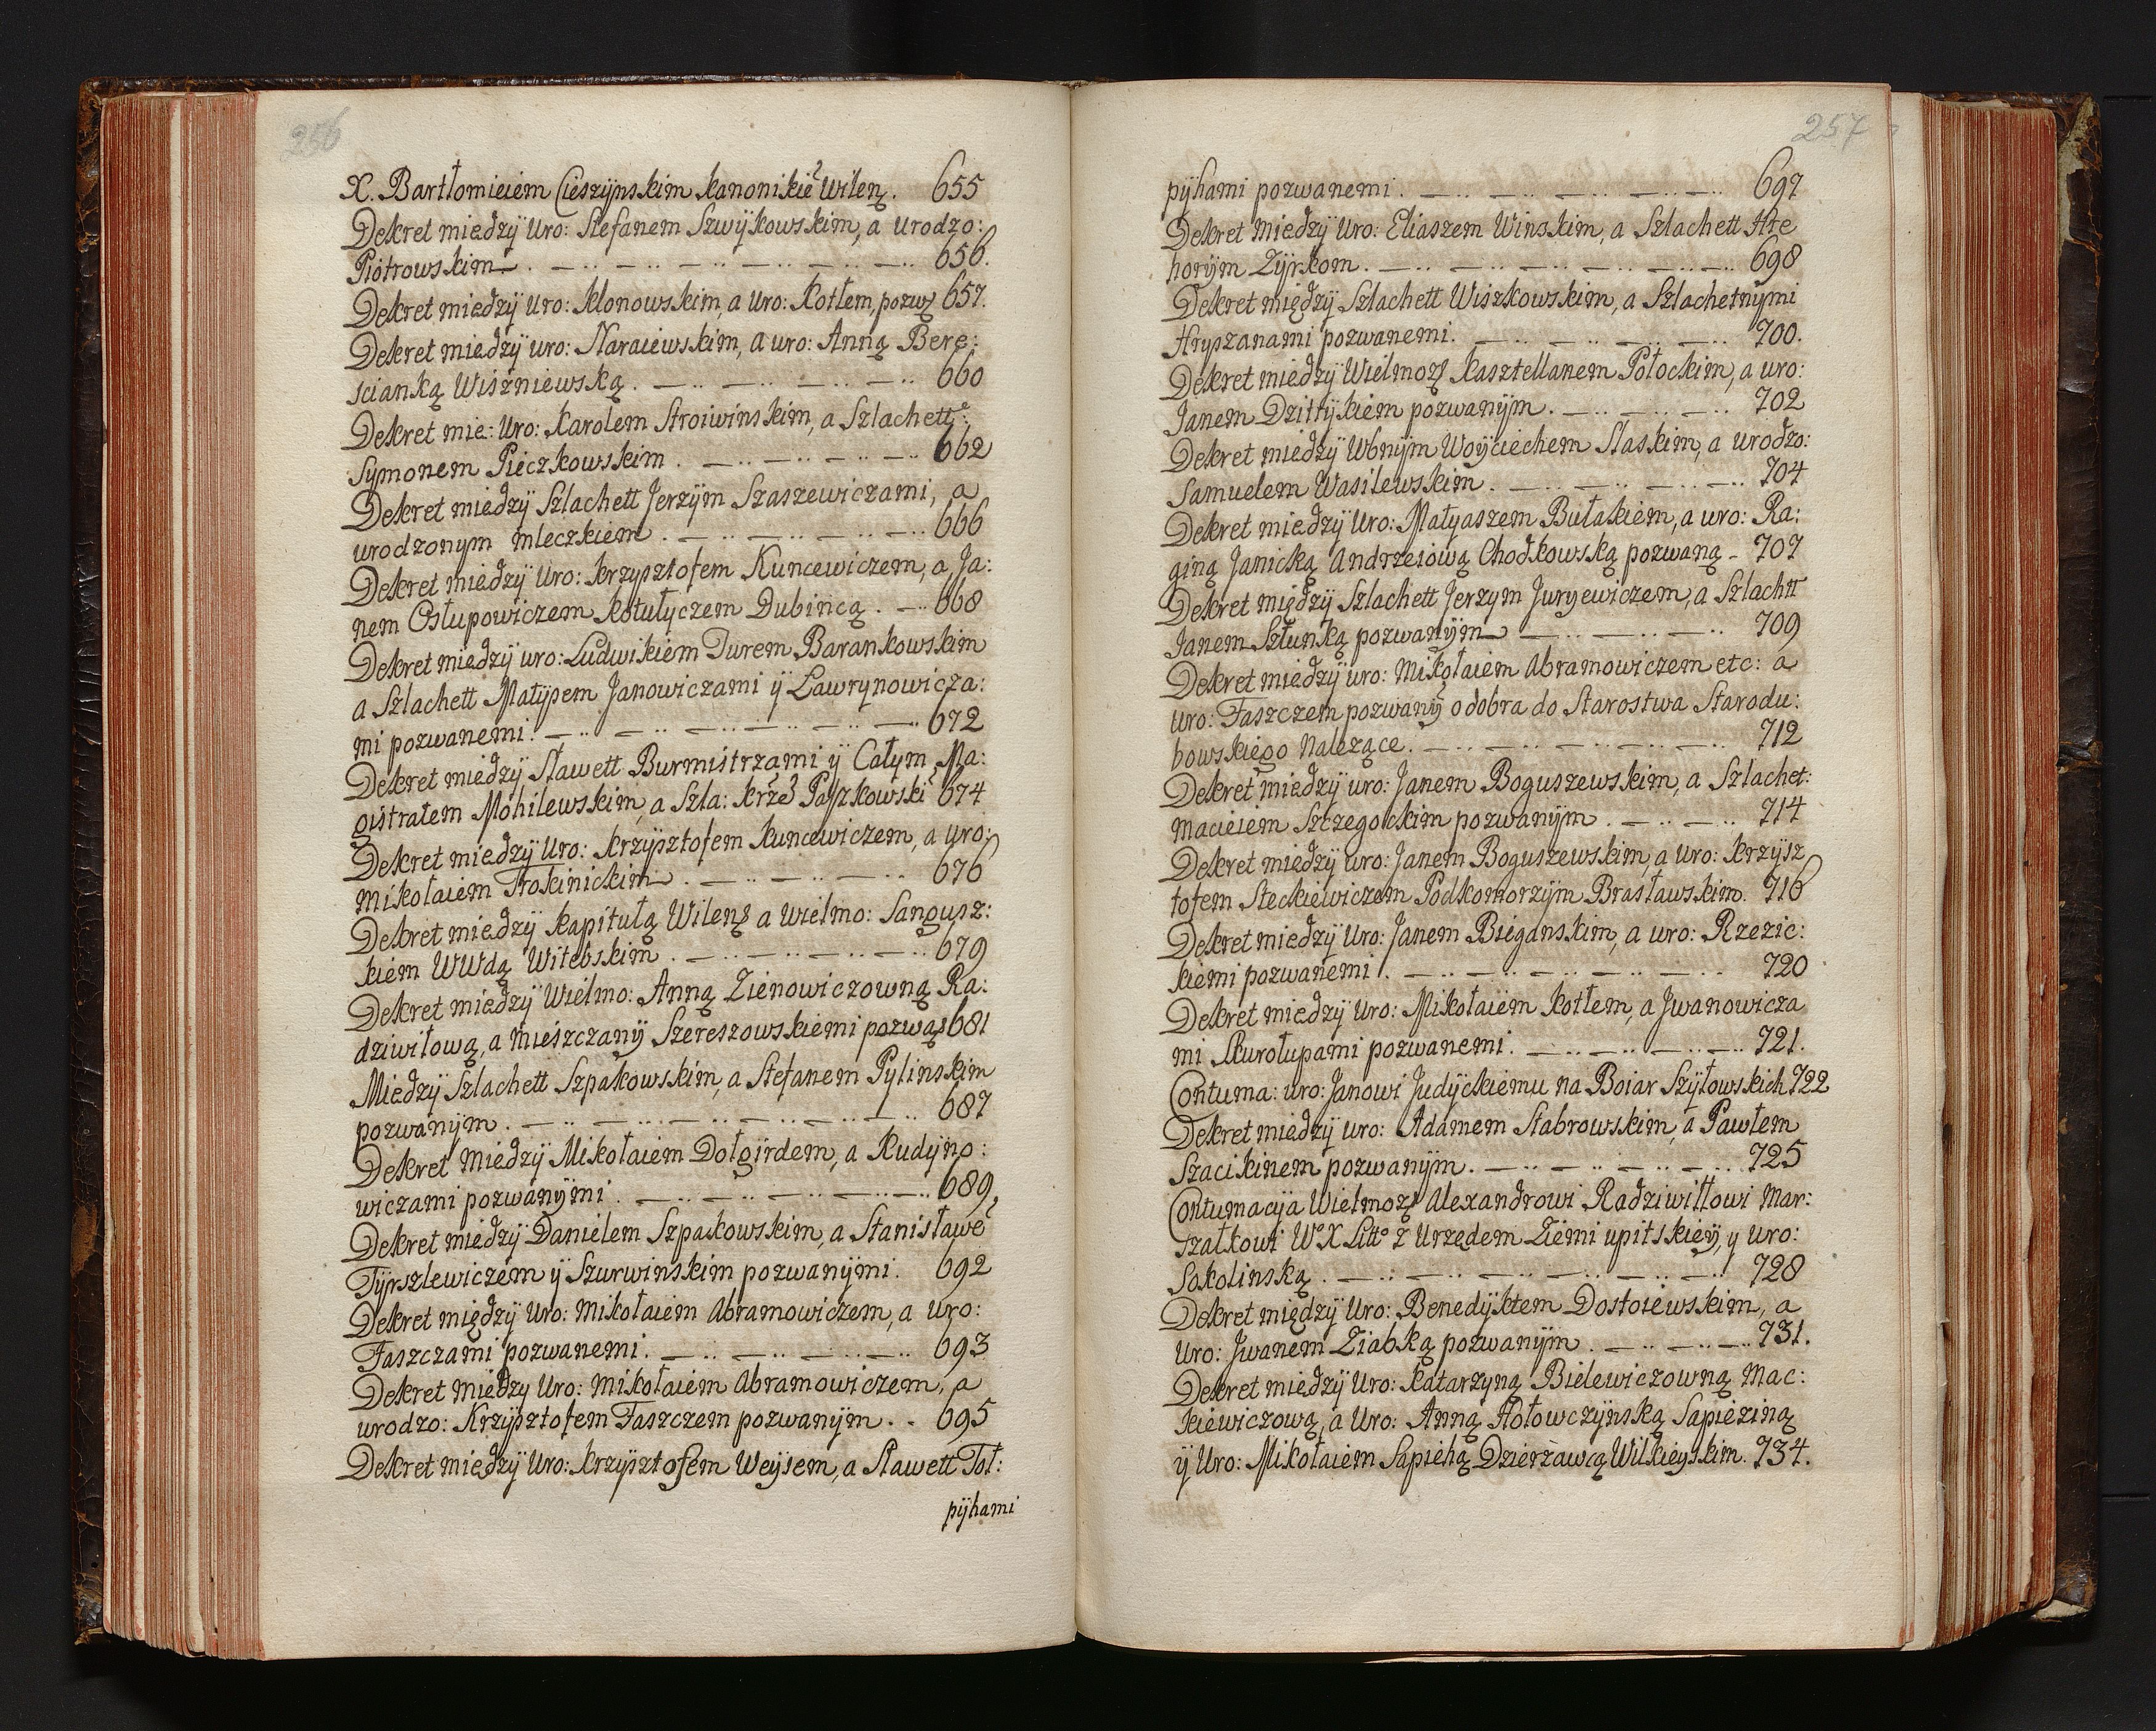 256
X. Bartłomieiem Cieszÿnskim kanonikiē Wilenꝫ. 655
Dekret miedzÿ Uro: Stefanem Szwÿkowskim, a Urodzo:
Piotrowskim. 656.
Dekret miedzÿ Uro: Klonowskim, a Uro: Kotłem, pozwꝫ 657.
Dekret miedzÿ uro: Naraiewskim, a uro: Anną Bere:
scianką Wiszniewską. 660
Dekret mie: Uro: Karolem Stroiwinskim, a Szlachett:
Symonem Pieczkowskim. 662
Dekret miedzÿ Szlachett Jerzÿm Szaszewiczami, a
urodzonym Mleczkiem. 666
Dekret miedzÿ Uro: krzysztofem Kuncewiczem, a Ja:
nem Ostupowiczem kotutyczem Dubincą. 668
Dekret miedzÿ uro: Ludwikiem Turem Barankowskim
a Szlachett Matÿsem Janowiczami ÿ Ławrynowicza:
mi pozwanemi. 672
Dekret miedzÿ Sławett Burmistrzami ÿ Całym Ma:
gistratem Mohilewskim, a Szla: krze Paszkowski 674
Dekret miedzÿ Uro: krzÿsztofem kuncewiczem, a uro:
Mikołaiem Trokinickim. 676
Dekret miedzÿ kapitułą Wilenꝫ a Wielmo: Sangusz:
kiem WWdą Witebskim. 679
Dekret miedzÿ Wielmo: Anną Zienowiczowną Ra:
dziwiłową, a Mieszczanÿ Szereszowskiemi pozwaꝫ 681
Miedzÿ Szlachett Szpakowskim, a Stefanem Pylinskim
pozwanÿm. 687
Dekret Miedzÿ Mikołaiem Dołgirdem, a Rudÿno:
wiczami pozwanÿmi. 689.
Dekret miedzÿ Danielem Szpakowskim, a Stanisławē
Tÿrszlewiczem ÿ Szurwinskim pozwanÿmi. 692
Dekret międzÿ Uro: Mikołaiem Abramowiczem, a Uro:
Faszczami pozwanemi. 693
Dekret Miedzy Uro: Mikołaiem Abramowiczem, a
urodzo: Krzÿsztofem Faszczem pozwanÿm.. 695
Dekret miedzÿ Uro: Krzysztofem Weÿsem, a Sławett Toł:
pÿhami
257
pÿhami pozwanemi. 697
Dekret Miedzÿ Uro: Eliaszem Winskim, a Szlachett Hre
horÿm Zÿrkom. 698
Dekret międzÿ Szlachett Wiszkowskim, a Szlachetnÿmi
Hryszanami pozwanemi. 700.
Dekret miedzÿ Wielmoꝫ Kasztellanem Połockim, a uro:
Janem Dzittÿkiem pozwanÿm. 702
Dekret miedzÿ Wbnÿm Woÿciechem Staskim, a urodzo:
Samuelem Wasilewskim. 704
Dekret miedzÿ Uro: Matyaszem Butakiem, a uro: Ra:
giną Janicką Andrzeiową Chodkowską pozwaną - 707
Dekret międzÿ Szlachett Jerzym Juryewiczem, a Szlachtt
Janem Sztunką pozwanÿm 709
Dekret miedzÿ uro: Mikołaiem Abramowiczem etc: a
uro: Faszczem pozwanÿ o dobra do Starostwa Starodu:
bowskiego Należące. 712
Dekret miedzÿ uro: Janem Boguszewskim, a Szlachet:
Macieiem Szczegockim pozwanÿm. 714
Dekret miedzÿ uro: Janem Boguszewskim, a Uro: krzÿsz
tofem Steckiewiczem Podkomorzÿm Brasławskim. 716
Dekret miedzÿ Uro: Janem Bieganskim, a uro: Rzezic:
kiemi pozwanemi. 720
Dekret miedzÿ Uro: Mikołaiem kotłem, a Jwanowicza
mi Kurołupami pozwanemi. 721.
Contuma: uro: Janowi Judÿckiemu na Boiar Szÿtowskich 722
Dekret miedzÿ uro: Adamem Stabrowskim, a Pawłem
Szacikinem pozwanÿm. 725
Contumacÿa Wielmoꝫ Alexandrowi Radziwiłłowi Mar:
szałkowi W X Litto z Urzędem Ziemi upitskieÿ, y Uro:
Sokolinską. 728
Dekret międzÿ Uro: Benedÿktem Dostoiewskim, a
Uro: Jwanem Ziabką pozwanÿm. 731.
Dekret miedzÿ Uro: Katarzyną Bielewiczowną Mac:
kiewiczową, a Uro: Anną Hołowczÿnską Sapieziną
ÿ Uro: Mikołaiem Sapiehą Dzierżawcą Wilkieyskim. 734.